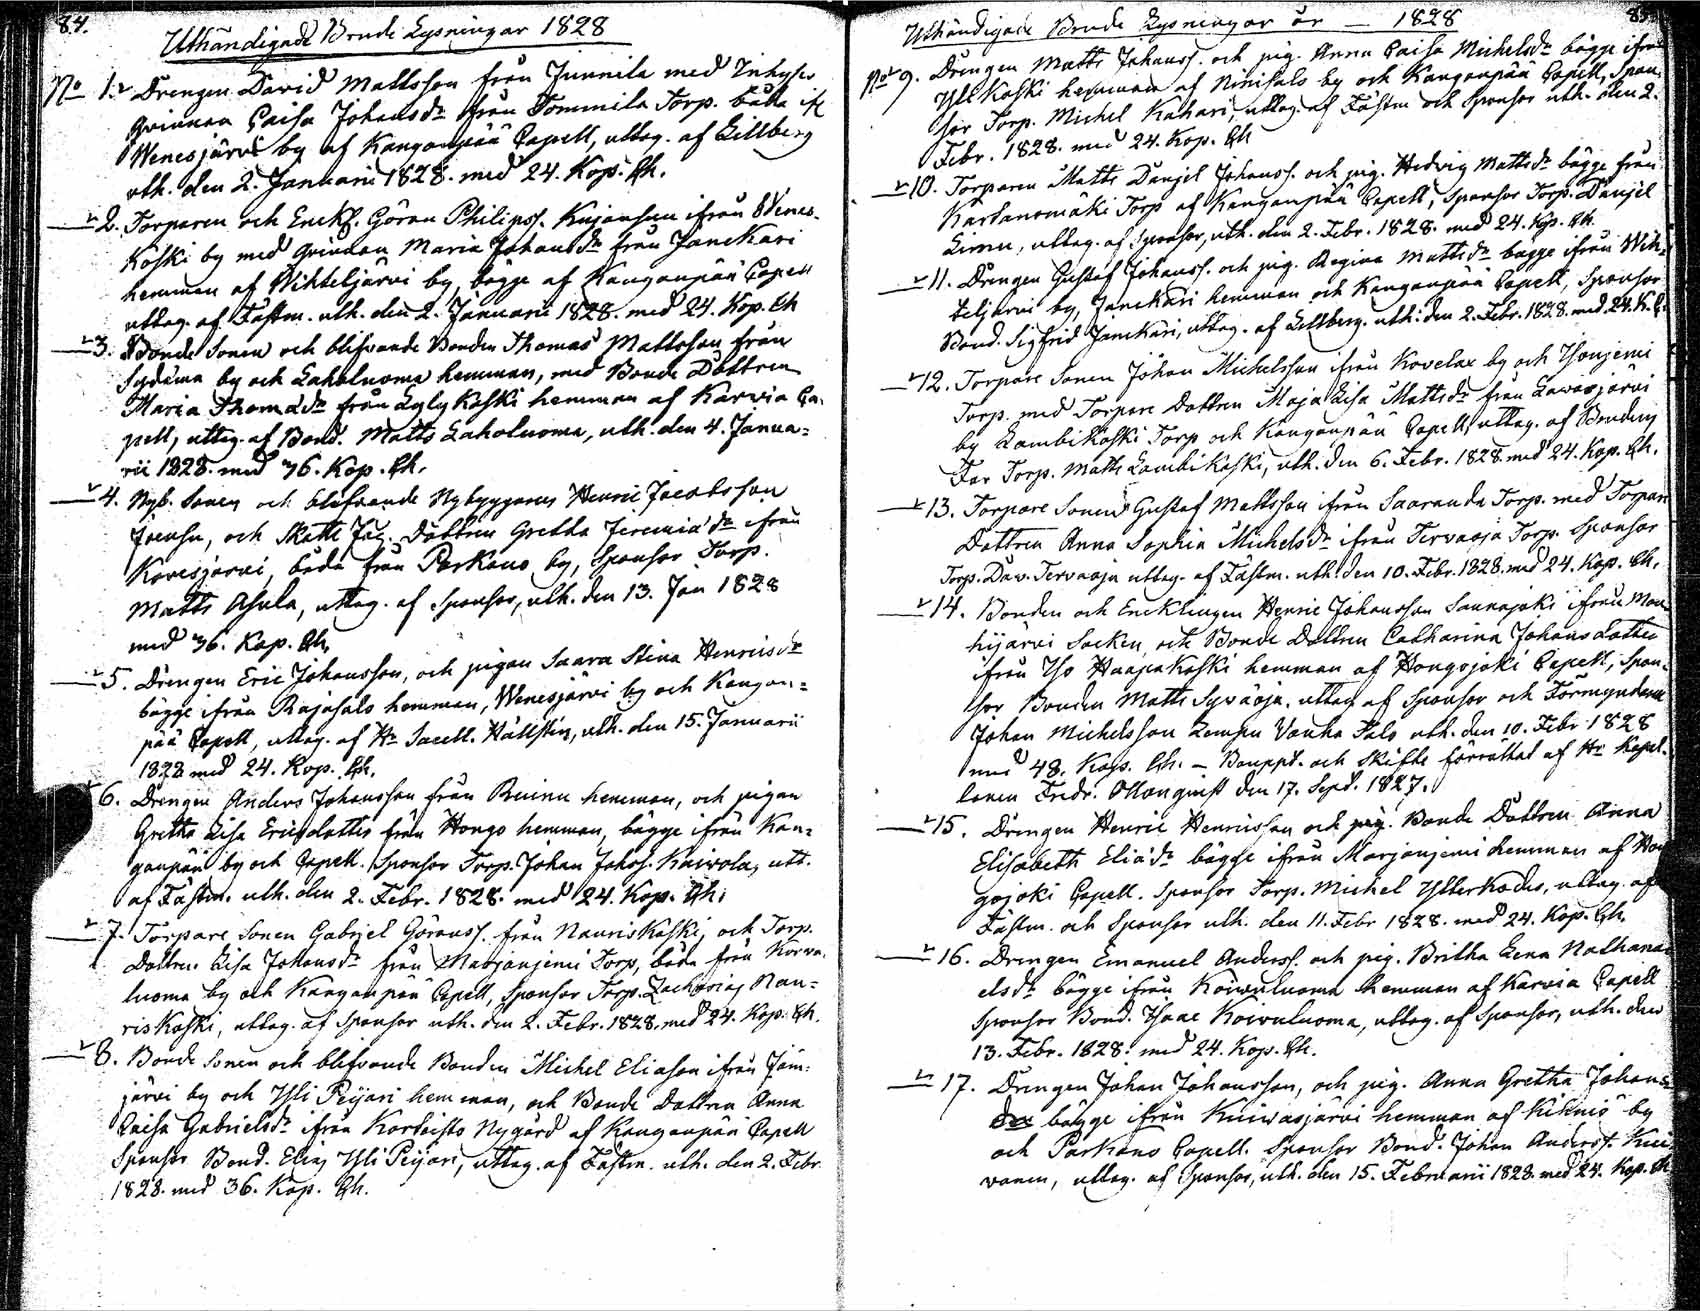 84.
Uthändigade Brude Lysningar 1828
No 1. Drengen David Mattsson från Junnila med Inhyses
qvinnan Caisa Johansdr från Tommila Torp. båda if
Wenesjärvi by af Kanganpää Capell, uttag. af Lillberg
uth. den 2. Januarii 1828. med 24. Kop. Ch.
2. Torparen och Enckl. Göran Philipss. Kujansuu ifrån Wenes-
koski by med qvinnan Maria Johansdr från Janckari
hemman af Wihteljärvi by, bägge af Kanganpää Capell
uttag. af Fästm. uth. den 2. Januarii 1828. med 24. Kop. Ch
3. Bonde Sonen och blifvande Bonden Thomas Mattsson från
Sydänma by och Laholuoma hemman, med Bonde Dottren
Maria Thomædr från Lylykoski hemman af Karvia Ca-
pell, uttag. af Bond. Matts Laholuoma, uth. den 4. Janua=
rii 1828. med 36. Kop. Ch.
4. Nyb. Sonen och blifvande Nybyggaren Henric Jacobsson
Jvensu, och Skatte Dottren Gretha Jeremiædr ifrån
Kovesjärvi, båda från Parkano by, Sponsor Torp.
Matts Asula, uttag. af Sponsor, uth. den 13. Jan 1828
med 36. Kop. Ch.
5. Drengen Eric Johansson, och pigan Saara Stina Henricsdr
bägge ifrån Rajasalo hemman, Wenesjärvi by och Kangan=
pää Capell, uttag. af Hr Sacell. Hällsten, uth. den 15. Januarii
1828 med 24. Kop. Ch.
6. Drengen Anders Johansson från Ruinu hemman, och pigan
Gretha Lisa Ericsdotter från Hongo hemman, bägge ifrån Kan=
ganpää by och Capell. Sponsor Torp. Johan Johss. Knivola, utt.
af Fästm. uth. den 2. Febr. 1828. med 24. Kop. Ch.
7. Torpare Sonen Gabriel Göranss. från Nauriskoski, och Torp.
Dottren Lisa Johansdr från Marjaniemi Torp, båda från Korva
luoma by och Kanganpää Capell, Sponsor Torp. Zacharias Nau=
riskoski, uttag. af Sponsor uth. den 2. Febr. 1828. med 24. Kop. Ch.
8. Bonde Sonen och blifvande Bonden Michel Eliason ifrån Jäm-
järvi by och Yli Peijari hemman, och Bonde Dottren Anna
Caisa Gabrielsdr ifrån Kordoisto Nygård af Kanganpää Capell
Sponsor Bond. Elias Yli Peijari, uttag. af Fästm. uth. den 2. Febr.
1828. med 36. Kop. Ch.
85.
Uthändigade Brude Lysningar år — 1828
No 9. Drengen Matts Johanss. och pig. Anna Caisa Michelsdr bägge ifrån
Yli Koski hemman af Niinisalo by och Kanganpää Capell, Spon-
sor Torp. Michel Kahari, uttag. af Fästm och Sponsor uth. den 2.
Febr. 1828. med 24. Kop. Ch
10. Torparen Matts Danjel Johanss. och pig. Hedvig Mattsdr bägge från
Karhanomäki Torp af Kanganpää Capell, Sponsor Torp. Danjel
Limu, uttag. af Sponsor, uth. den 2. Febr. 1828. med 24. Kop. Ch.
11. Drengen Gustaf Johanss. och pig. Regina Mattsdr bägge ifrån Wih-
teljärvi by, Janckari hemman och Kanganpää Capell, Sponsor
Bond. Sigfrid Janckari, uttag. af Lillberg. uth. den 2. Febr. 1828. med 24. K. C.
12. Torpare Sonen Johan Michelsson ifrån Kovelax by och Isonjemi
Torp. med Torpare Dottren Maja Lisa Mattsdr från Lavasjärvi
by Lambikoski Torp och Kanganpää Capell, uttag. af Brudens
Far Torp. Matts Lambikoski, uth. den 6. Febr. 1828 med 24. Kop. Ch.
13. Torpare Sonen Gustaf Mattsson ifrån Saaranda Torp. med Torpare
Dottren Anna Sophia Michelsdr ifrån Tervaoja Torp. Sponsor
Torp. Dav. Tervaoja uttag. af Fästm. uth. den 10. Febr. 1828. med 24. Kop. Ch.
14. Bonden och Encklingen Henric Johansson Saunajoki ifrån Mou-
hijärvi Socken, och Bonde Dottren Catharina Johansdotter
ifrån Iso Haapakoski hemman af Hongojoki Capell, Spon-
sor Bonden Matts Syväoja, uttag. af Sponsor och Förmyndaren
Johan Michelsson Lempu Vanha Salo uth. den 10. Febr 1828
med 48. Kop. Ch. — Bouppt. och Skifte förrättat af Hr Kapel-
lanen Fredr. Monquist den 17. Sept. 1827.
15. Drengen Henric Henricsson och pig. Bonde Dottren Anna
Elisabeth Eliædr bägge ifrån Marjanjemi hemman af Hon
gojoki Capell. Sponsor Torp. Michel Ylterkodus, uttag. af
Fästm. och Sponsor uth. den 11. Febr 1828. med 24. Kop. Ch.
16. Drengen Emanuel Anderss. och pig. Britha Lena Nathana
elsdr bägge ifrån Koivuluoma hemman af Karvia Capell
Sponsor Bond. Isaac Koivuluoma, uttag. af Sponsor, uth. den
13. Febr. 1828. med 24. Kop. Ch.
17. Drengen Johan Johansson, och pig. Anna Gretha Johans=
bägge ifrån Kuivasjärvi hemman af Kihniö by
och Parkano Capell. Sponsor Bond. Johan Anderss. Kui
vanen, uttag. af Sponsor, uth. den 15. Februarii 1828. med 24. Kop. Ch